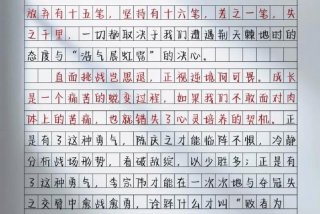 放弃有十五笔，坚持有十六笔，差之一笔，失
之千里，一切都取决于我们遭遇荆天棘地时的
态度与“浩气展虹霓”的决心。
直面挑战岂思退，正视逆境何可畏。成长
是一个痛苦的蜕变过程，如果我们不敢面对肉
体上的苦痛，也就错失了心灵培养的契机。正
是有了这种勇气，陈庆之才能临阵不惧，冷静
分析战场形势，看破破绽，以少胜多；正是有
了这种勇气，李宗伟才能在一次次地与夺冠失
之交臂中愈战愈勇，诠释什么才叫“败者为